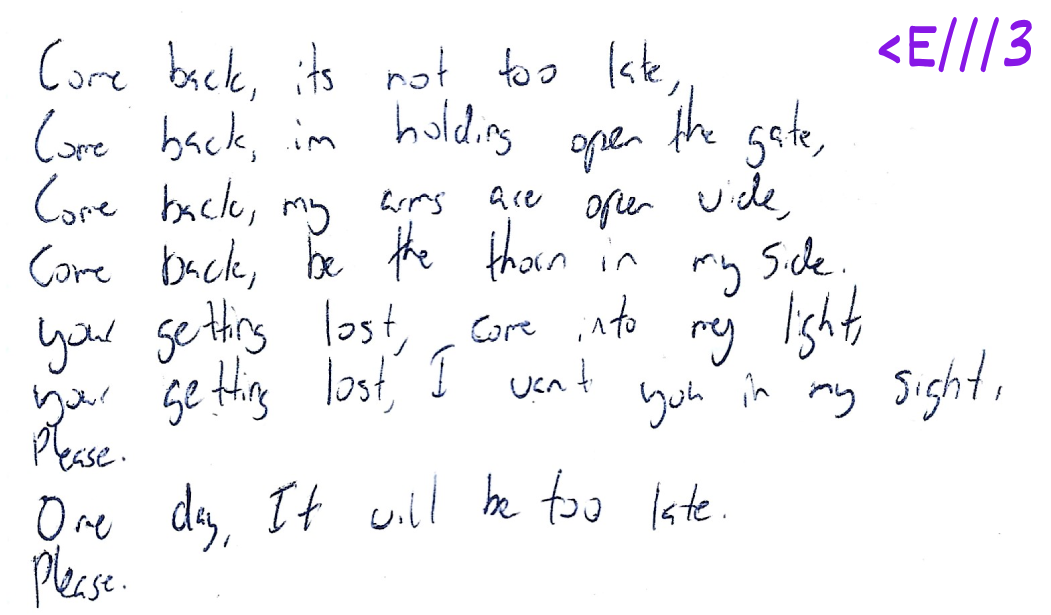 <E///3
Come back, its not too late,
Come back, im holding open the gate,
Come back, my arms are open wide,
Come back, be the thorn in my side.
your getting lost, come into my light,
your getting lost, I want you in my sight,
Please.
One day, It will be too late.
Please.